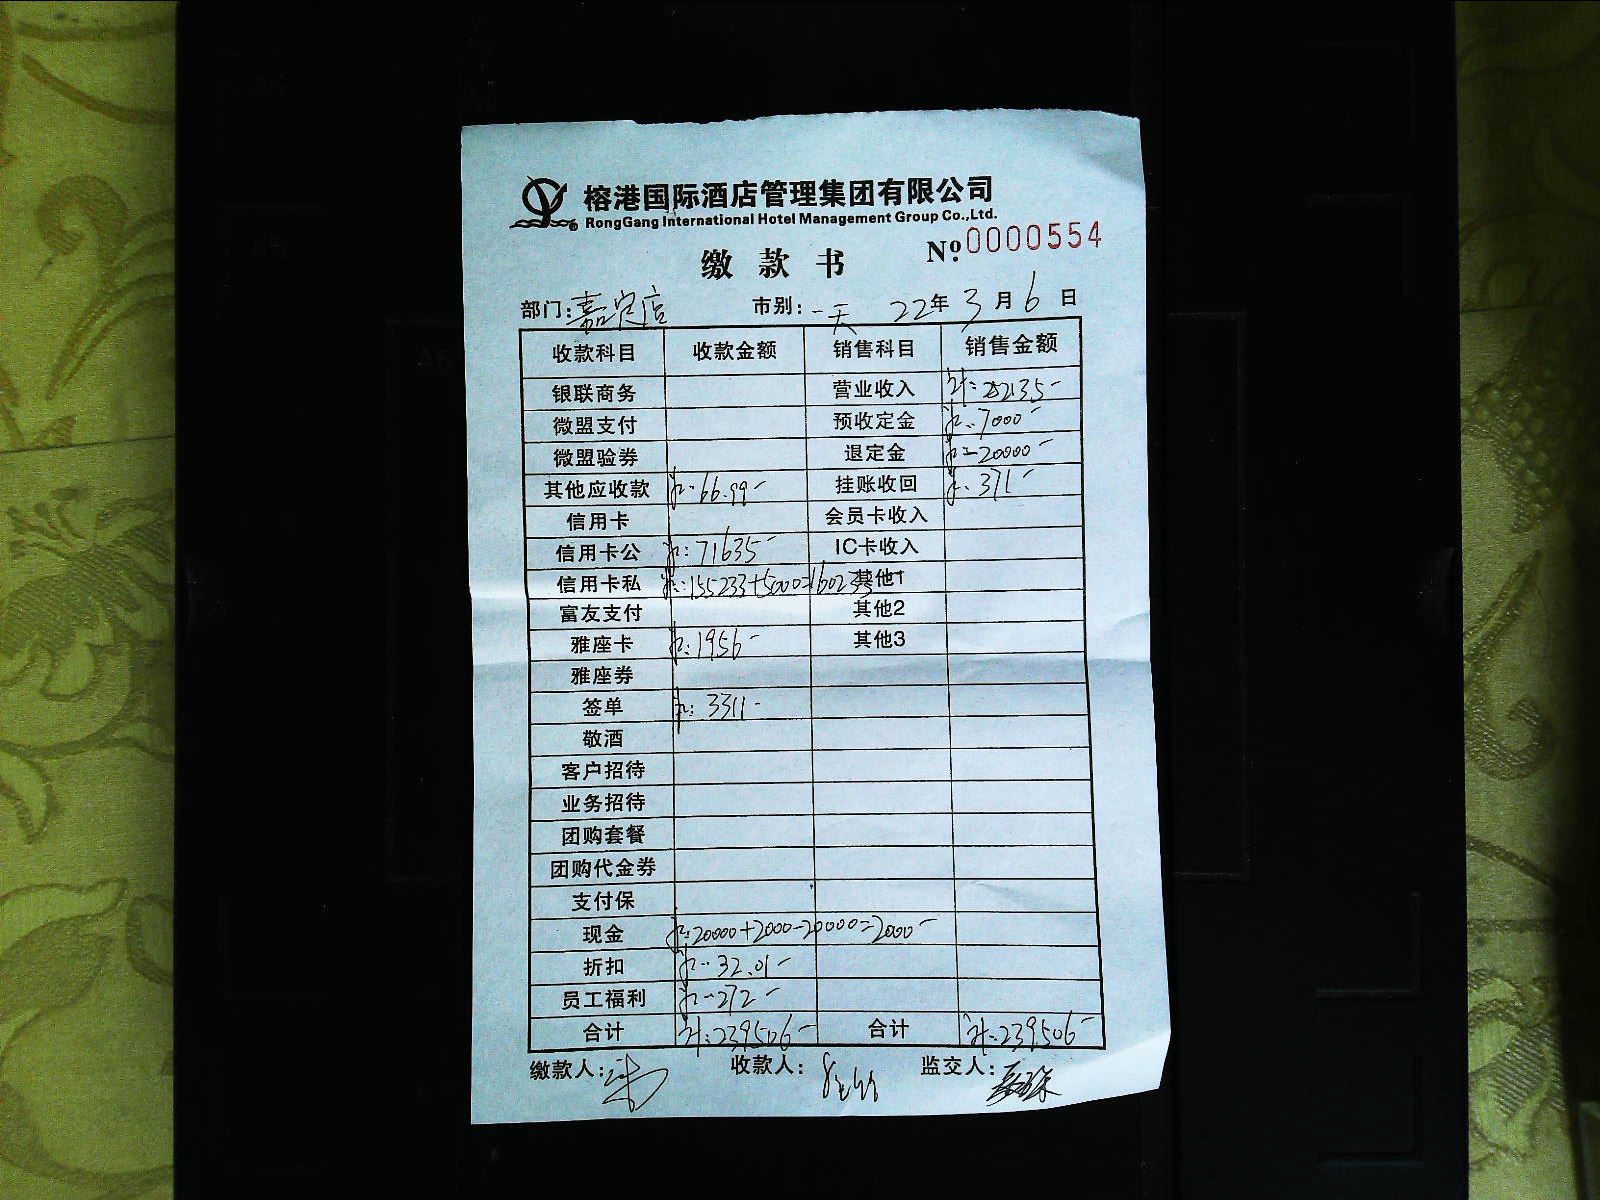 榕港国际酒店管理集团有限公司
RongGang International Hotel Management Group Co.,Ltd.
缴款书 №0000554
部门:嘉定店 市别:一天 22年3月6日
收款科目 收款金额 销售科目 销售金额
银联商务 营业收入 计:252135-
微盟支付 预收定金 计:7000-
微盟验券 退定金 计:-20000-
其他应收款 计:66.99- 挂账收回 计:371-
信用卡 会员卡收入
信用卡公 计:71635- IC卡收入
信用卡私 计:155233+5000=160233- 其他1
富友支付 其他2
雅座卡 计:1956- 其他3
雅座券
签单 计:3311-
敬酒
客户招待
业务招待
团购套餐
团购代金券
支付保
现金 计:20000+2000-20000=2000-
折扣 计:32.01-
员工福利 计:272-
合计 计:239506- 合计 计:239506-
缴款人: 收款人: 监交人: